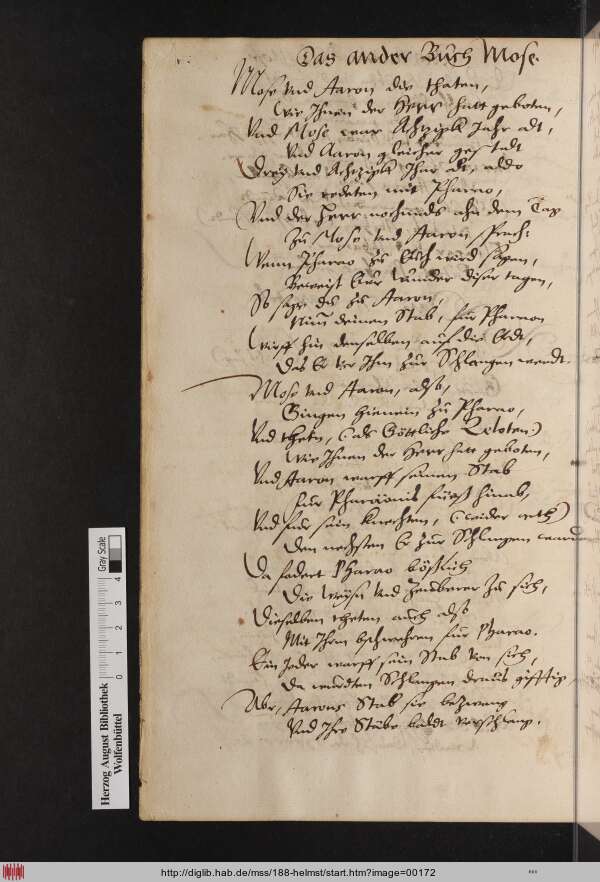 Das ander Buch Mose.
Mose und Aaron die thaten,
Wie Ihnen der Herr hatt geboten,
Und Mose war Achtzigk Jahr alt,
Und Aaron gleicher gestalt
Drey und Achtzigk Jhar alt, aldo
Sie redeten mit Pharao,
Und der Herr nochmals ahn dem Tag
Zu Mose und Aaron sprach:
Wenn Pharao zu Euch wird sagen,
Beweist Eur Wunder diser tagen,
So sage du zu Aaron,
Nim deinen Stab, fur Pharaon
Wirff hin denselben auf die Erdt,
Das Er vor Ihm zur Schlangen werdt.
Mose und Aaron, also,
Gingen hienein zu Pharao,
Und theten, (als Göttliche Zeloten)
Wie Ihnen der Herr hatt geboten,
Und Aaron warff seinen Stab
fur Pharaonis hinab,
Und fur sein knechten,
Den Er zur Schlangen
Da fodert Pharao
Die Weysn und Zauberer zu sich,
Dieselben theten auch also
Mit Ihrm bschwehren fur Pharao.
Ein Jeder warff sein Stab von sich,
Da wurdten Schlangen draus gifftig,
Abr, Aarons Stab sie bezwang
Und Ihre Stäbe baldt verschlang.
Herzog August Bibliothek
Wolfenbüttel
0 1 2 3 4
Gray Scale
http://diglib.hab.de/mss/188-helmst/start.htm?image=00172